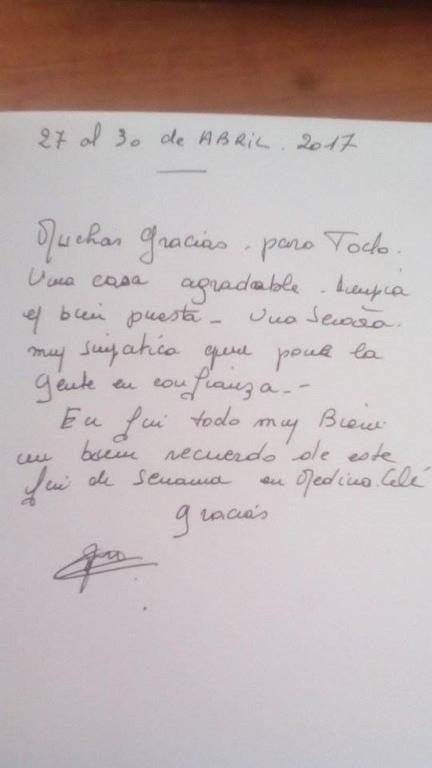 27 al 30 de ABRIL. 2017
Muchas gracias. para Todo.
Una casa agradable. limpia
y bien puesta - Una Senora.
muy simpatica que pone la
gente en confianza. -
En fin todo muy Bien
un buen recuerdo de este
fin de Semana en Medina. Celi
gracias